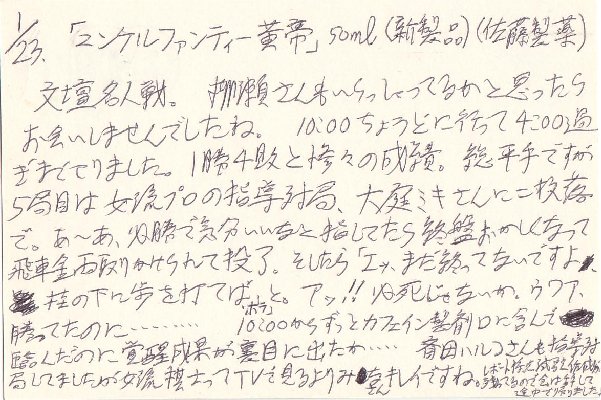 1/23. 「ユンケルファンティー黄帝」50ml (新製品) (佐藤製薬)
文壇名人戦。 柳瀬さんもいらっしゃってるかと思ったら
お会いしませんでしたね。 10:00ちょうどに行って4:00過
ぎまでやりました。1勝4敗と惨々の成績。総平手ですが
5局目は女流プロの指導対局、大庭ミキさんに二枚落
で。あ〜あ、必勝で気分いいなと指してたら終盤おかしくなって
飛車金両取りかけられて投了。そしたら「エッ、まだ終ってないですよ、
桂の下に歩を打てば」と。アッ!! 必死じゃないか。ウワア、
勝ってたのに………… 10:00からずっとカフェイン製剤口に含んで
臨んだのに覚醒成果が裏目に出たか…… 斎田ハルコさんも指導対
局してましたが女流棋士ってTVで見るよりみなさんキレイですね。